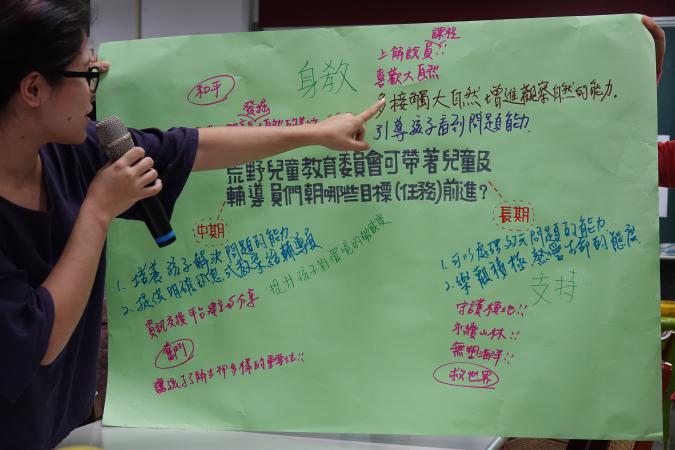 課程
上解說員
喜歡大自然
和平
身教
發掘
多接觸大自然增進觀察自然的能力.
引導孩子看到問題能力
荒野兒童教育委員會可帶著兒童及
輔導員們朝哪些目標(任務)前進?
中期
長期
1. 培養孩子解決問題的能力
2. 提供明確訊息式教案給輔導員
提升孩子對環境的敏感度
資訊交換平台建立與分享
奮鬥
1. 可以處理多元問題的能力
2. 樂觀積極 熱愛古鄉的態度
支持
守護棲地!!
永續山林!!
無塑海洋!!
救世界